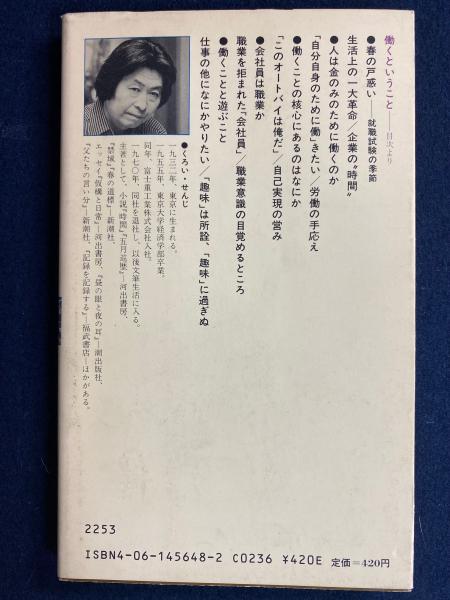 働くということ——目次より
●春の戸惑い——就職試験の季節
生活上の一大革命／企業の“時間”
●人は金のみのために働くのか
「自分自身のために働」きたい／労働の手応え
●働くことの核心にあるのはなにか
「このオートバイは俺だ」／自己実現の営み
●会社員は職業か
職業を拒まれた「会社員」／職業意識の目覚めるところ
●働くことと遊ぶこと
仕事の他になにかやりたい／「趣味」は所詮、「趣味」に過ぎぬ
●くろい・せんじ
一九三二年、東京に生まれる。
一九五五年、東京大学経済学部卒業。
同年、富士重工業株式会社入社。
一九七〇年、同社を退社し、以後文筆生活に入る。
主著として、小説『時間』『五月巡歴』—河出書房、
『禁域』『春の道標』—新潮社、
エッセイ『仮構と日常』—河出書房、『昼の眼と夜の耳』—潮出版社、
『父たちの言い分』—新潮社、『記録を記録する』—福武書店—ほかがある。
2253
ISBN4-06-145648-2 C0236 ¥420E 定価＝420円